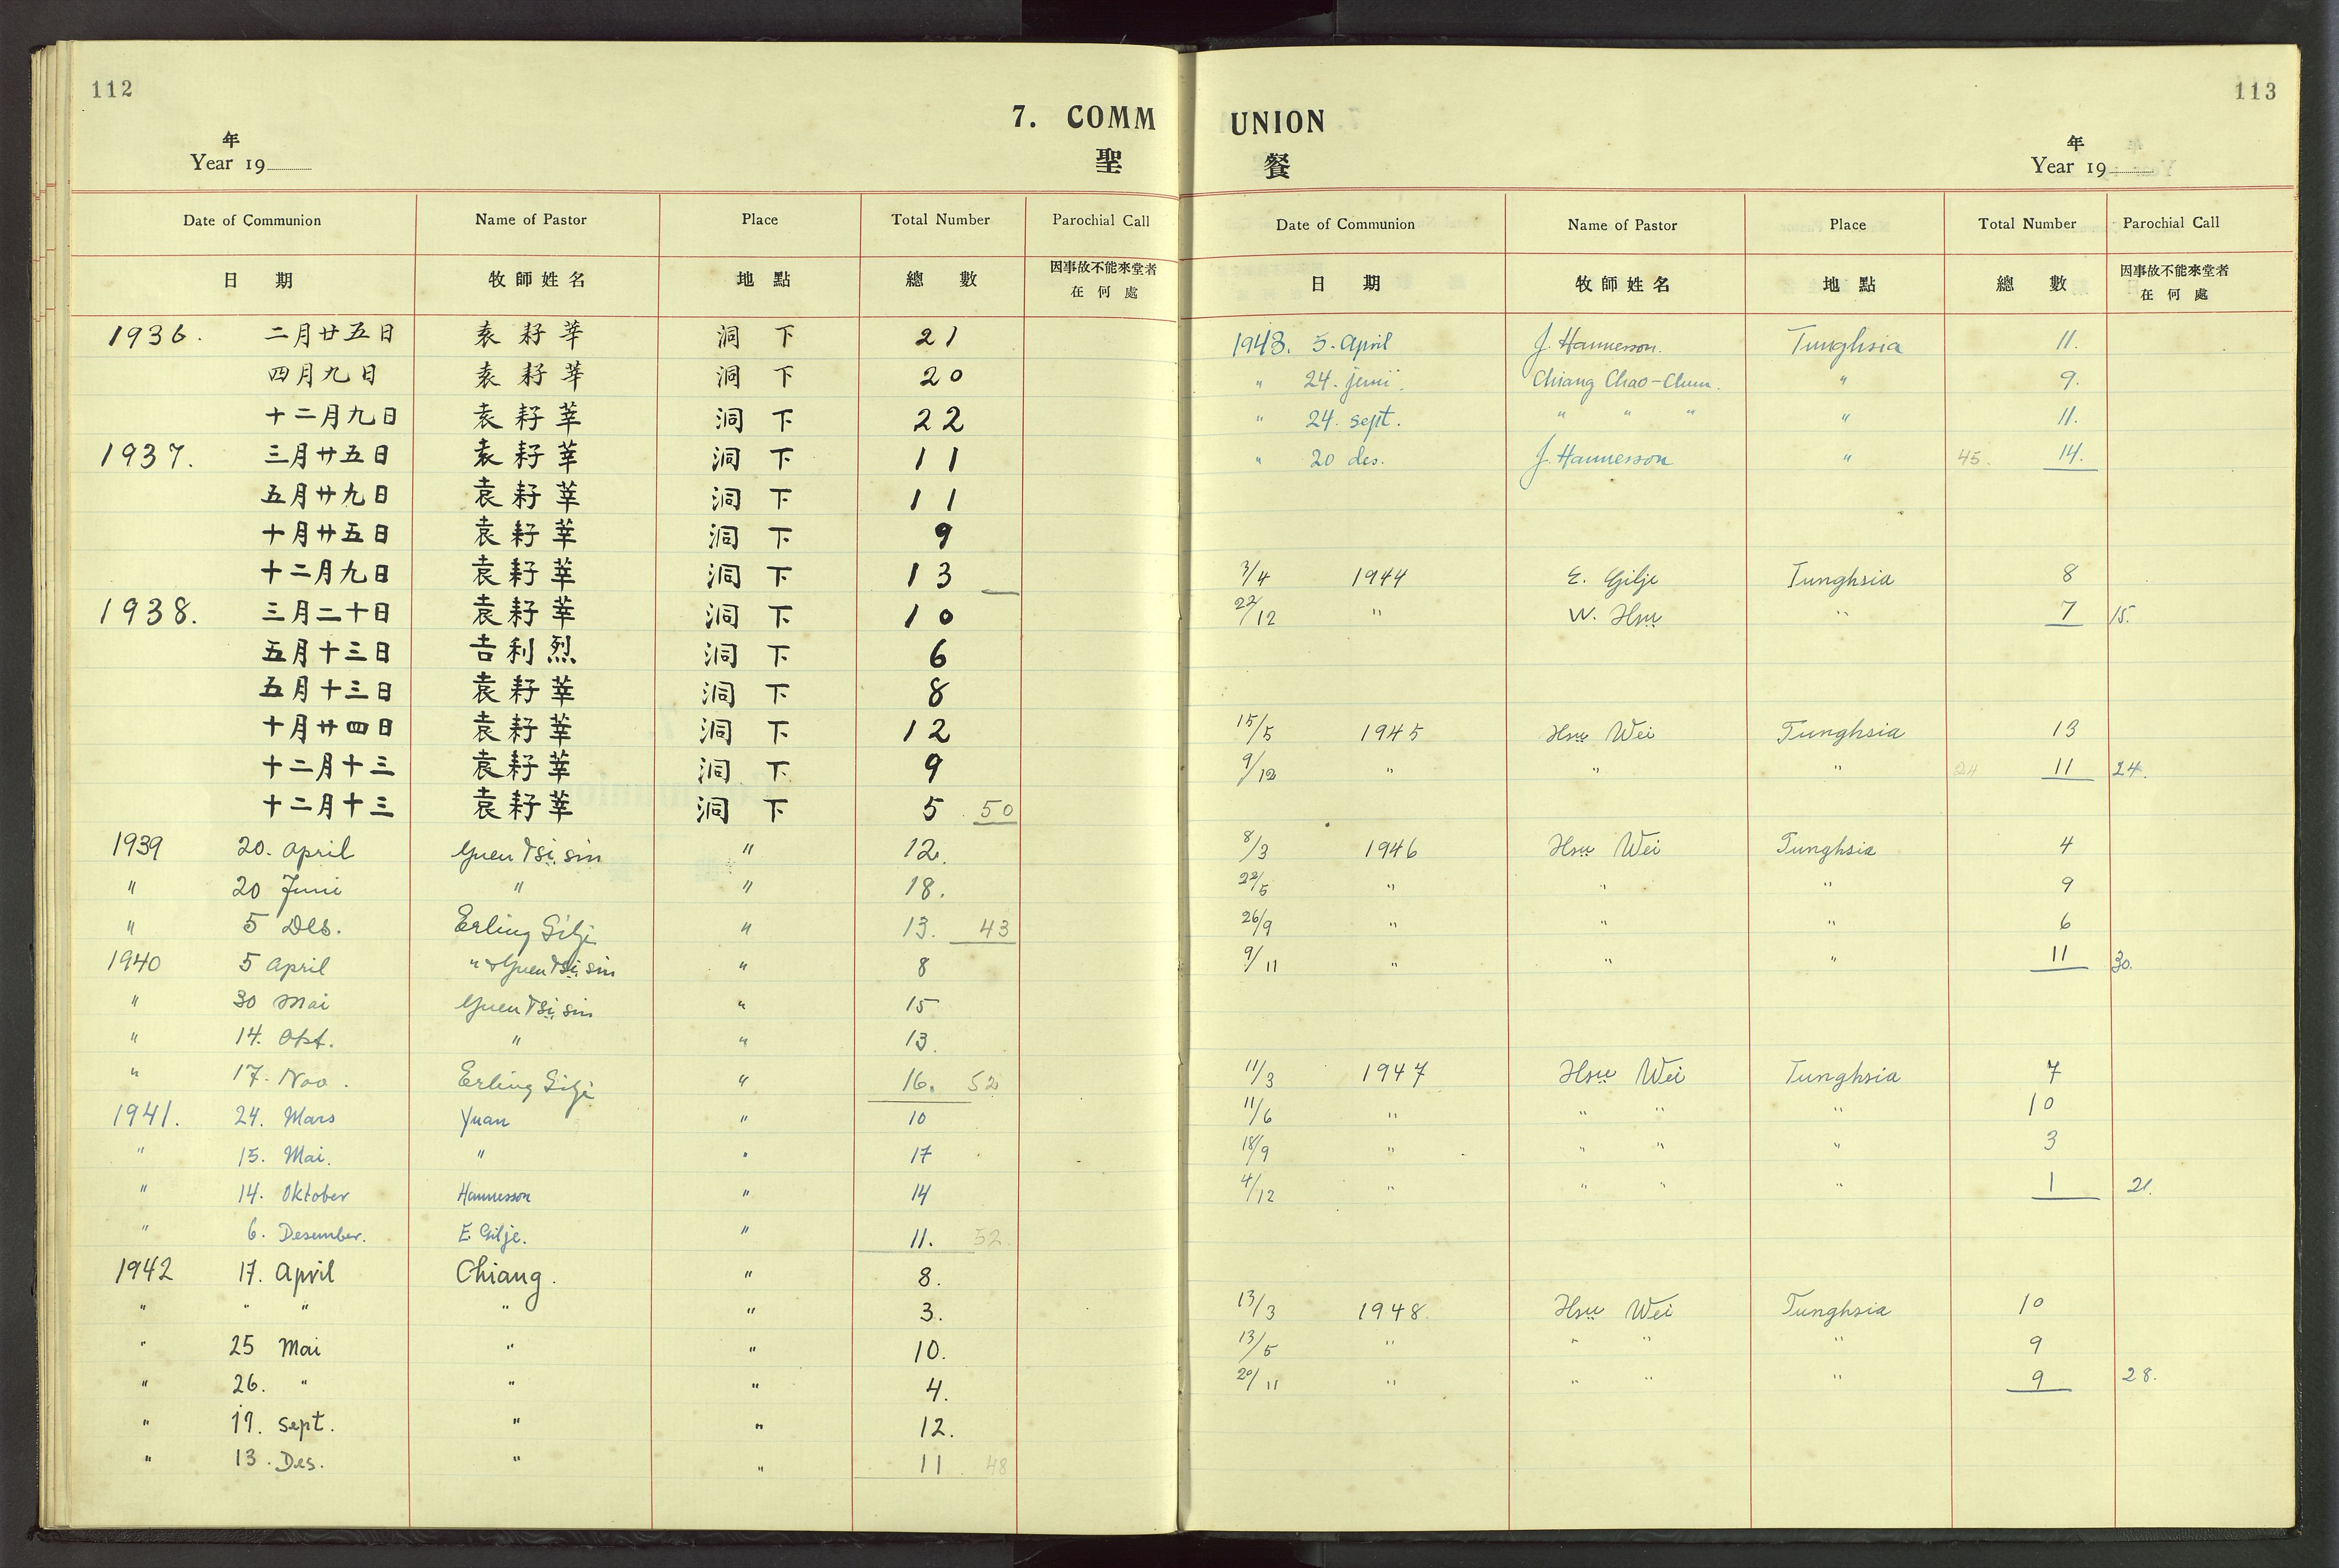 112
7. COMM
年
Year 19
聖
Date of Communion Name of Pastor Place Total Number Parochial Call
日 期 牧師姓名 地點 總數 因事故不能來堂者
在何處
1936. 二月廿五日 袁耔莘 洞下 21
四月九日 袁耔莘 洞下 20
十二月九日 袁耔莘 洞下 22
1937. 三月廿五日 袁耔莘 洞下 11
五月廿九日 袁耔莘 洞下 11
十月廿五日 袁耔莘 洞下 9
十二月九日 袁耔莘 洞下 13
1938. 三月二十日 袁耔莘 洞下 10
五月十三日 吉利烈 洞下 6
五月十三日 袁耔莘 洞下 8
十月廿四日 袁耔莘 洞下 12
十二月十三 袁耔莘 洞下 9
十二月十三 袁耔莘 洞下 5 50
1939 20. April Yuen Tsi sin " 12.
" 20 Juni " " 18.
" 5 Des. Erling Gilje " 13. 43
1940 5 April " & Yuen Tsi sin " 8
" 30 Mai Yuen Tsi sin " 15
" 14. Okt. " " 13.
" 17. Nov. Erling Gilje " 16. 52
1941. 24. Mars Yuan " 10
" 15. Mai. " " 17
" 14. Oktober Hannesson " 14
" 6. Desember. E. Gilje. " 11. 52.
1942 17. April Chiang. " 8.
" " " " " 3.
" 25 Mai " " 10.
" 26. " " " 4.
" 19. Sept. " " 12.
" 13. Des. " " 11 48
113
UNION
年
Year 19
餐
Date of Communion Name of Pastor Place Total Number Parochial Call
日 期 牧師姓名 地點 總數 因事故不能來堂者
在何處
1943. 5. April J. Hannesson. Tunghsia 11.
" 24. juni. Chiang Chao-Chun. " 9.
" 24. sept. " " " " 11.
" 20 des. J. Hannesson " 45. 14.
3/4 1944 E. Gilje Tunghsia 8
22/12 " W. Hsu " 7 15.
15/5 1945 Hsu Wei Tunghsia 13
9/12 " " " 24 11 24.
8/3 1946 Hsu Wei Tunghsia 4
22/5 " " " 9
26/9 " " " 6
9/11 " " " 11 30.
11/3 1947 Hsu Wei Tunghsia 7
11/6 " " " " 10
18/9 " " " " 3
4/12 " " " " 1 21.
13/3 1948. Hsu Wei Tunghsia 10
13/5 " " " " 9
20/11 " " " " 9 28.